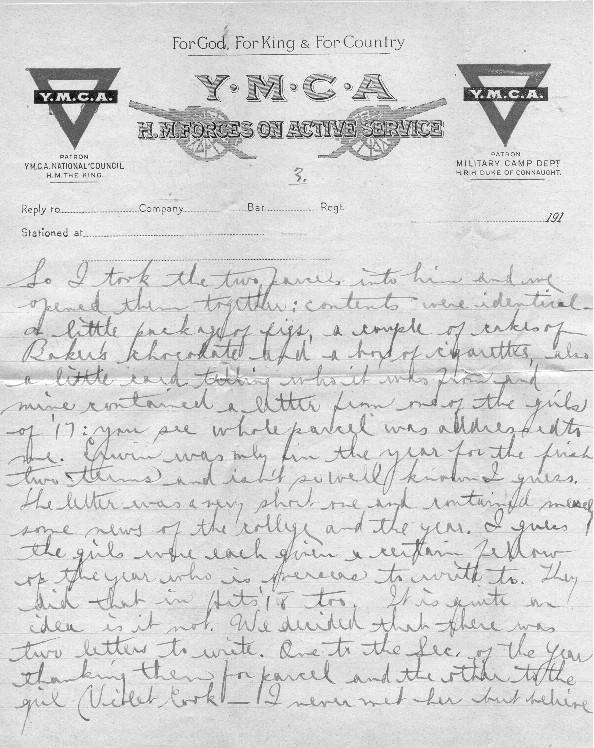 For God, For King & For Country
Y·M·C·A
H.M. FORCES ON ACTIVE SERVICE
Y.M.C.A.
PATRON
Y.M.C.A. NATIONAL COUNCIL
H.M. THE KING.
Y.M.C.A.
PATRON
MILITARY CAMP DEPT
H.R.H. DUKE OF CONNAUGHT.
3.
Reply to Company Bat. Regt.
191
Stationed at
So I took the two parcels into him and we
opened them together: contents were identical –
a little package of figs, a couple of cakes of
Baker's chocolate and a box of cigarettes, also
a little card telling who it was from and
mine contained a letter from one of the girls
of '17: you see whole parcel was addressed to
me. Erwin was only in the year for the first
two terms and isn't so well known I guess.
The letter was a very short one and contained merely
some news of the college and the year. I guess
the girls were each given a certain fellow
of the year who is overseas to write to. They
did that in Arts '18 too. It is quite an
idea is it not. We decided that there was
two letters to write. One to the Sec. of the Year
thanking them for parcel and the other to the
girl (Violet Cook – I never met her but believe